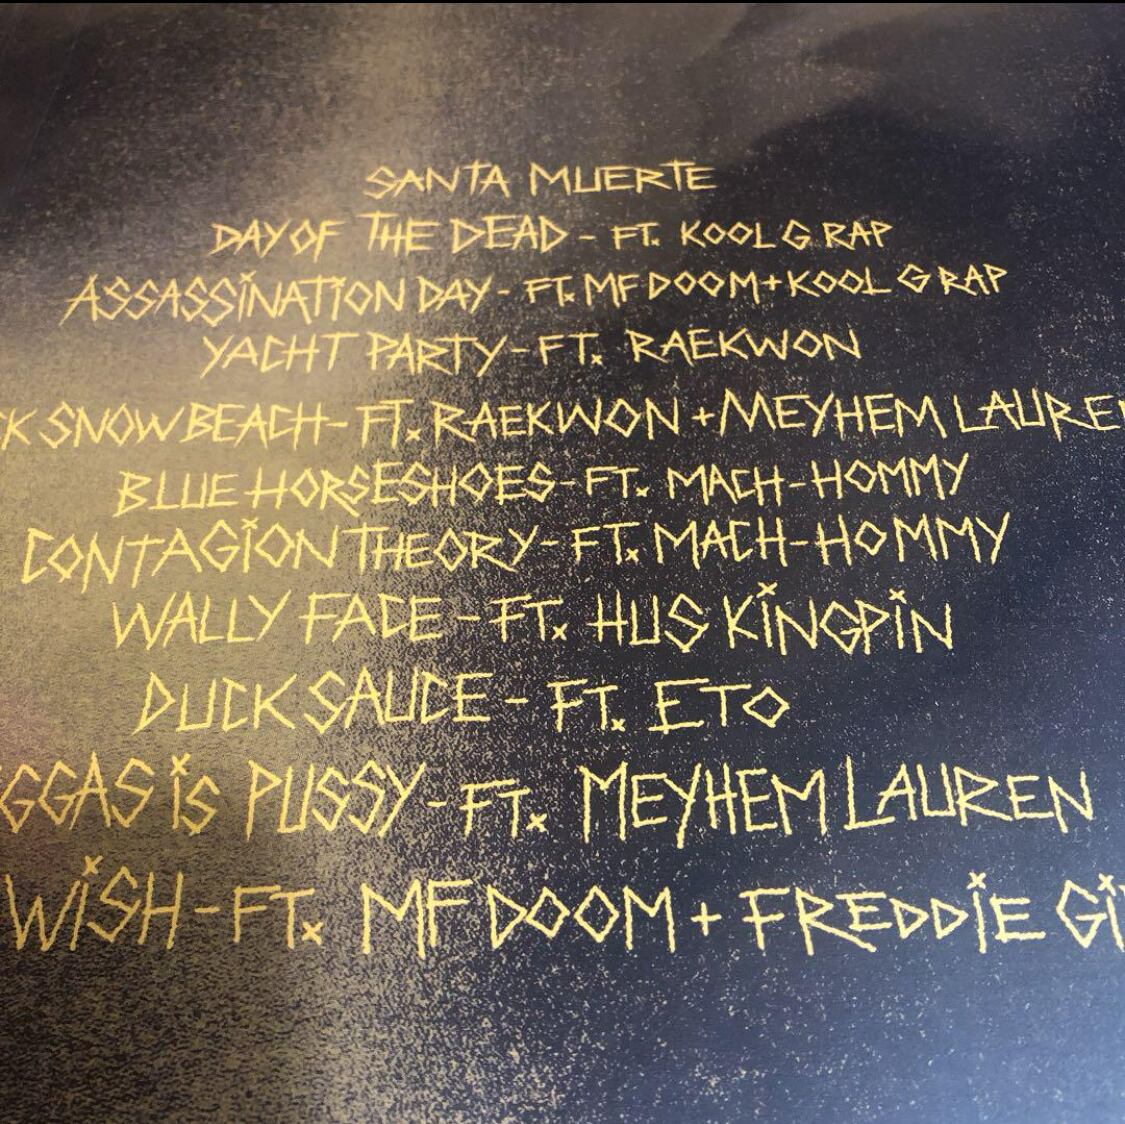 SANTA MUERTE
DAY OF THE DEAD - FT. KOOL G RAP
ASSASSINATION DAY - FT. MF DOOM + KOOL G RAP
YACHT PARTY - FT. RAEKWON
CK SNOW BEACH - FT. RAEKWON + MEYHEM LAUREN
BLUE HORSESHOES - FT. MACH-HOMMY
CONTAGION THEORY - FT. MACH-HOMMY
WALLY FACE - FT. HUS KINGPIN
DUCK SAUCE - FT. ETO
GGAS IS PUSSY - FT. MEYHEM LAUREN
WISH - FT. MF DOOM + FREDDIE GI